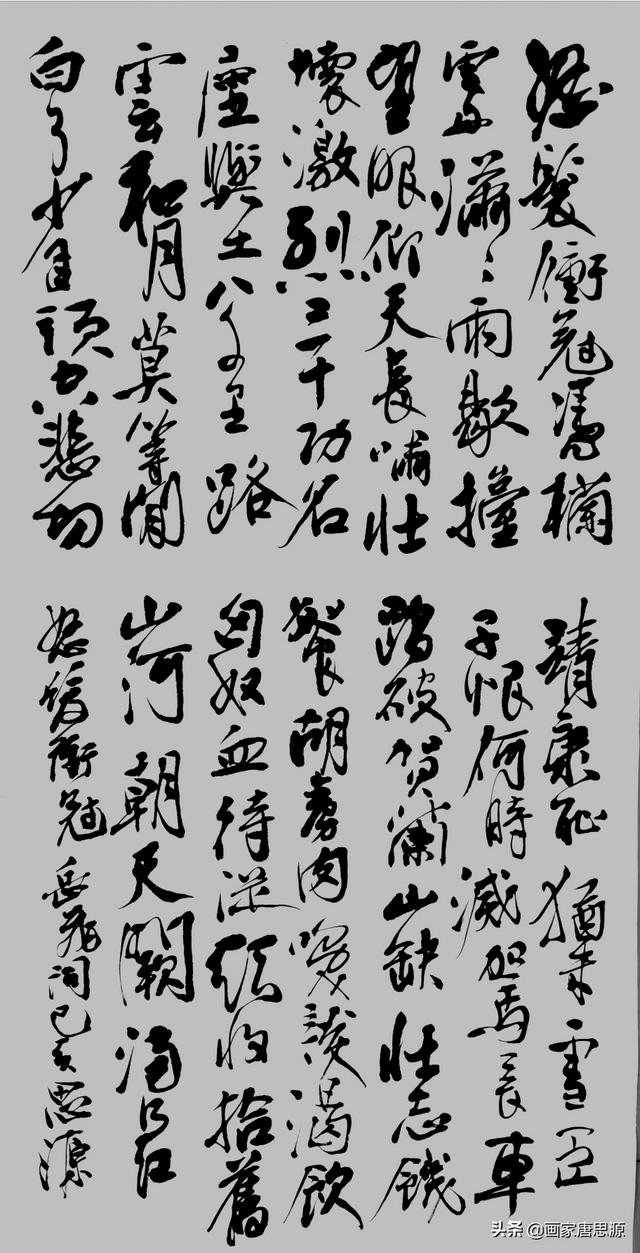 怒髮衝冠憑欄
處瀟〻雨歇擡
望眼仰天長嘯壯
懷激烈三十功名
塵與土八千里路
雲和月莫等閒
白了少年頭空悲切
靖康恥猶未雪臣
子恨何時滅駕長車
踏破賀蘭山缺壯志饑
餐胡虜肉笑談渴飲
匈奴血待從頭收拾舊
山河朝天闕滿江紅
怒髮衝冠岳飛詞己亥思源
头条 @画家唐思源